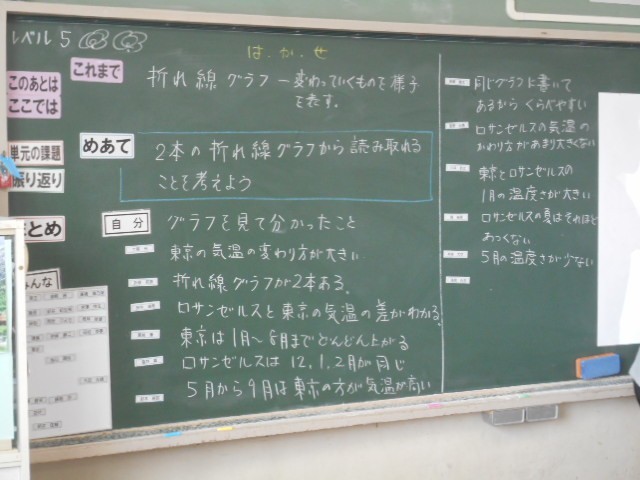 レベル5
は．か．せ
このあとは
ここでは
これまで
折れ線グラフ－変わっていくものを様子
を表す。
単元の課題
振り返り
めあて
2本の折れ線グラフから読み取れる
ことを考えよう
まとめ
自分
グラフを見て分かったこと
東京の気温の変わり方が大きい
折れ線グラフが2本ある。
ロサンゼルスと東京の気温の差がわかる。
東京は1月～8月までどんどん上がる
ロサンゼルスは12.1.2月が同じ
5月から9月は東京の方が気温が高い
みんな
同じグラフに書いて
あるからくらべやすい
ロサンゼルスの気温の
かわり方があまり大きくない
東京とロサンゼルスの
1月の温度さが大きい
ロサンゼルスの夏はそれほど
あつくない
5月の温度さが少ない